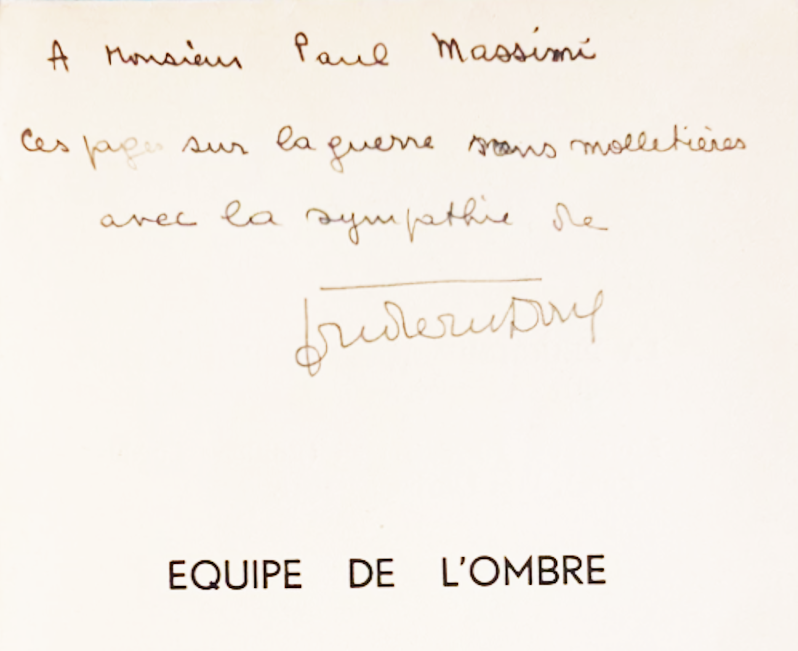 A Monsieur Paul Massimi
ces pages sur la guerre sans molletières
avec la sympathie de
Frédéric Dard
EQUIPE DE L'OMBRE